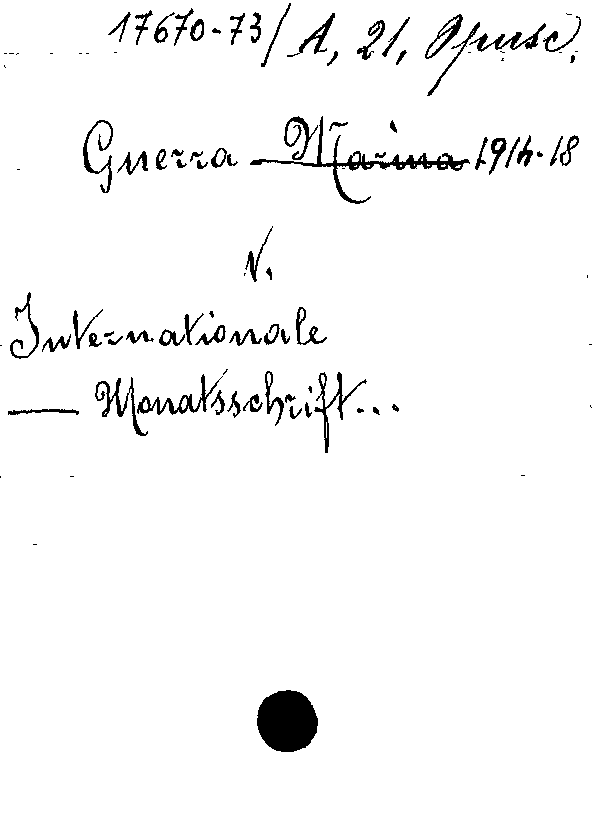 17670-73/A, 21, Opusc.
Guerra - Marina 1914-18
V.
Internationale
— Monatsschrift...